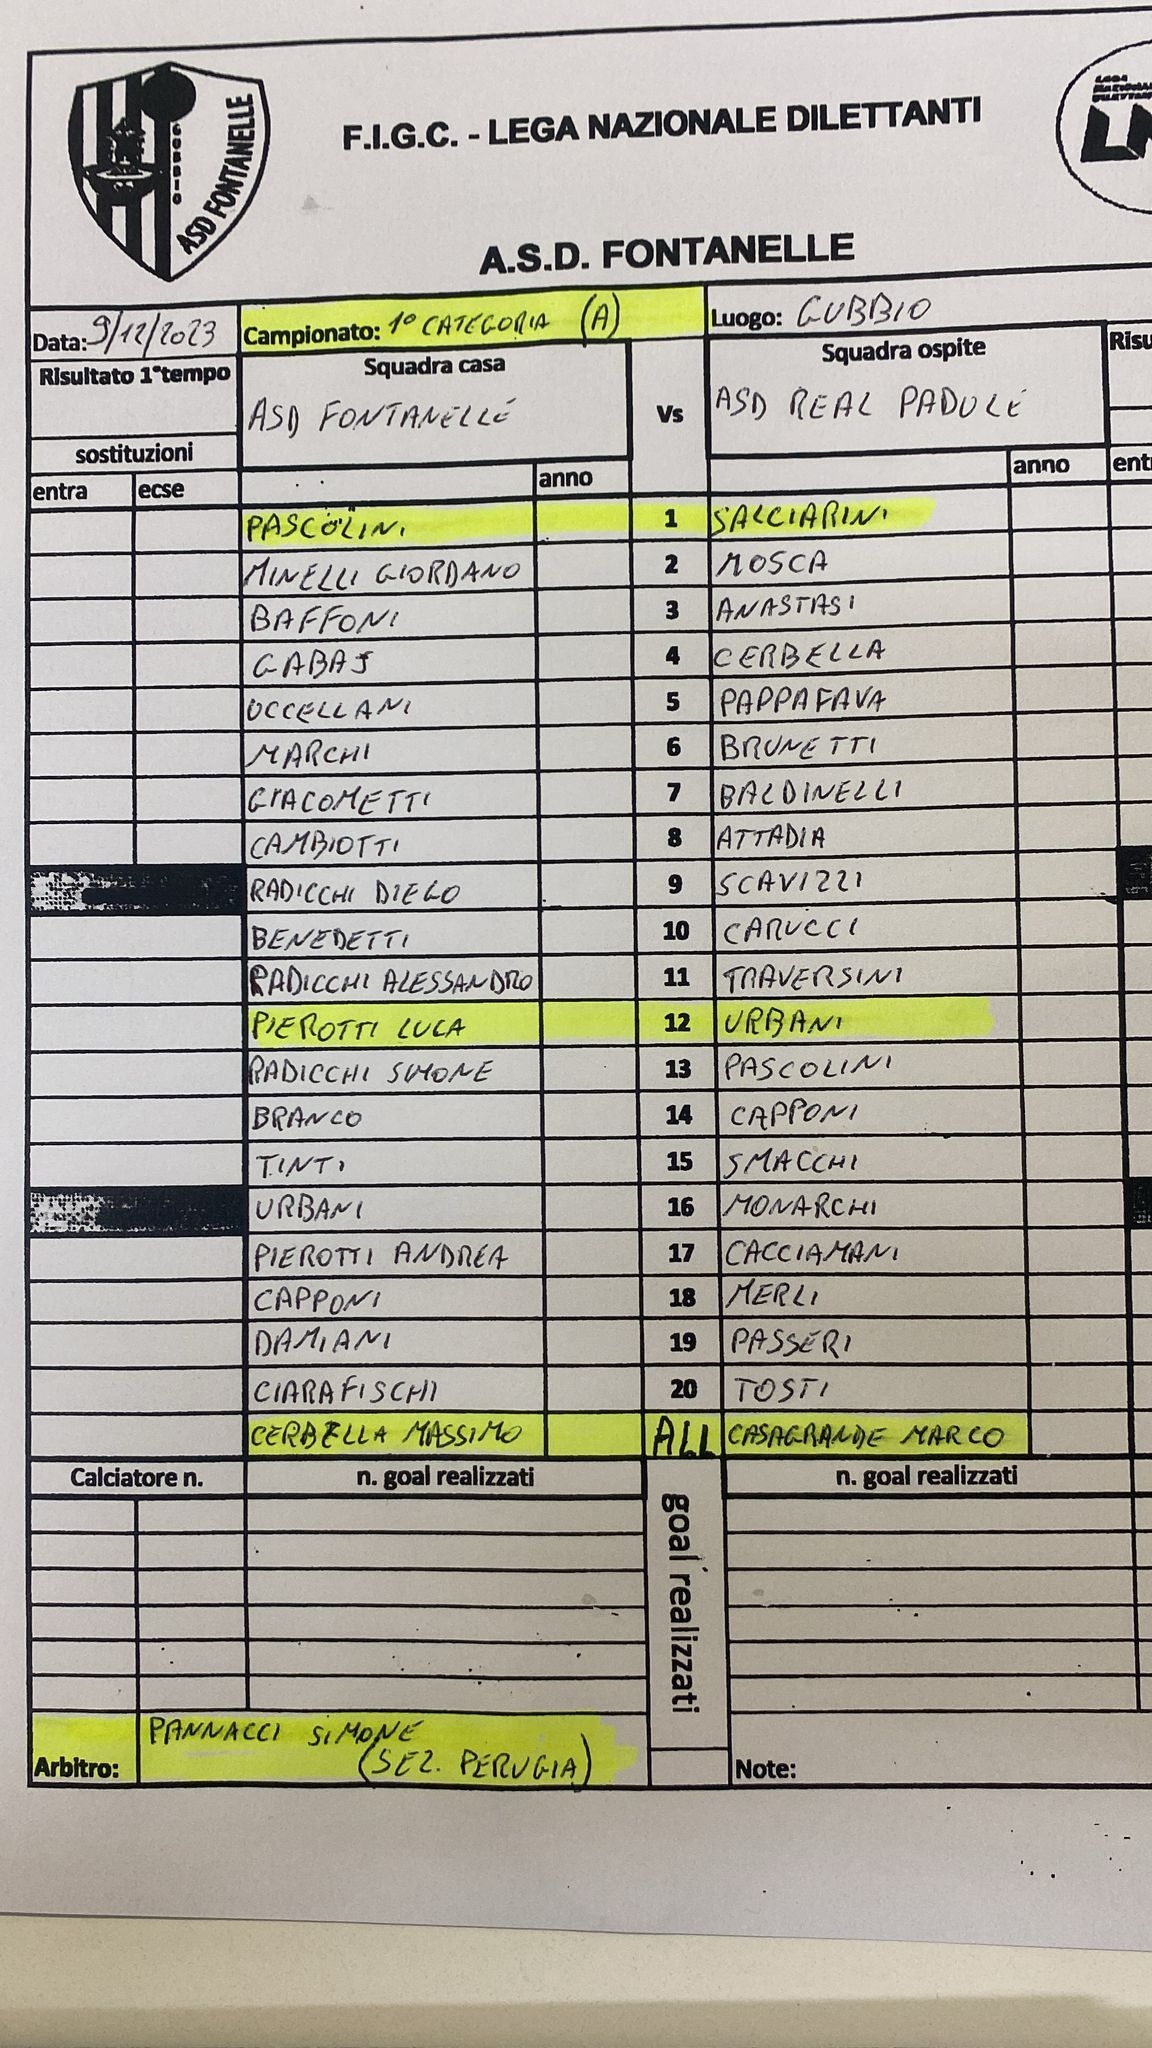 GUBBIO
ASD FONTANELLE
LEGA
NAZIONALE
DILETTANTI
F.I.G.C. - LEGA NAZIONALE DILETTANTI
A.S.D. FONTANELLE
Data: 9/12/2023 Campionato: 1° CATEGORIA (A) Luogo: GUBBIO
Risultato 1°tempo Squadra casa Vs Squadra ospite
ASD FONTANELLE ASD REAL PADULE
sostituzioni
entra ecse anno anno
PASCOLINI 1 SALCIARINI
MINELLI GIORDANO 2 MOSCA
BAFFONI 3 ANASTASI
GABAS 4 CERBELLA
UCCELLANI 5 PAPPAFAVA
MARCHI 6 BRUNETTI
GIACOMETTI 7 BALDINELLI
CAMBIOTTI 8 ATTADIA
RADICCHI DIEGO 9 SCAVIZZI
BENEDETTI 10 CARUCCI
RADICCHI ALESSANDRO 11 TRAVERSINI
PIEROTTI LUCA 12 URBANI
RADICCHI SIMONE 13 PASCOLINI
BRANCO 14 CAPPONI
TINTI 15 SMACCHI
URBANI 16 MONARCHI
PIEROTTI ANDREA 17 CACCIAMANI
CAPPONI 18 MERLI
DAMIANI 19 PASSERI
CIARAFISCHI 20 TOSTI
CERBELLA MASSIMO ALL CASAGRANDE MARCO
Calciatore n. n. goal realizzati goal realizzati n. goal realizzati
Arbitro: PANNACCI SIMONE
(SEZ. PERUGIA)
Note: